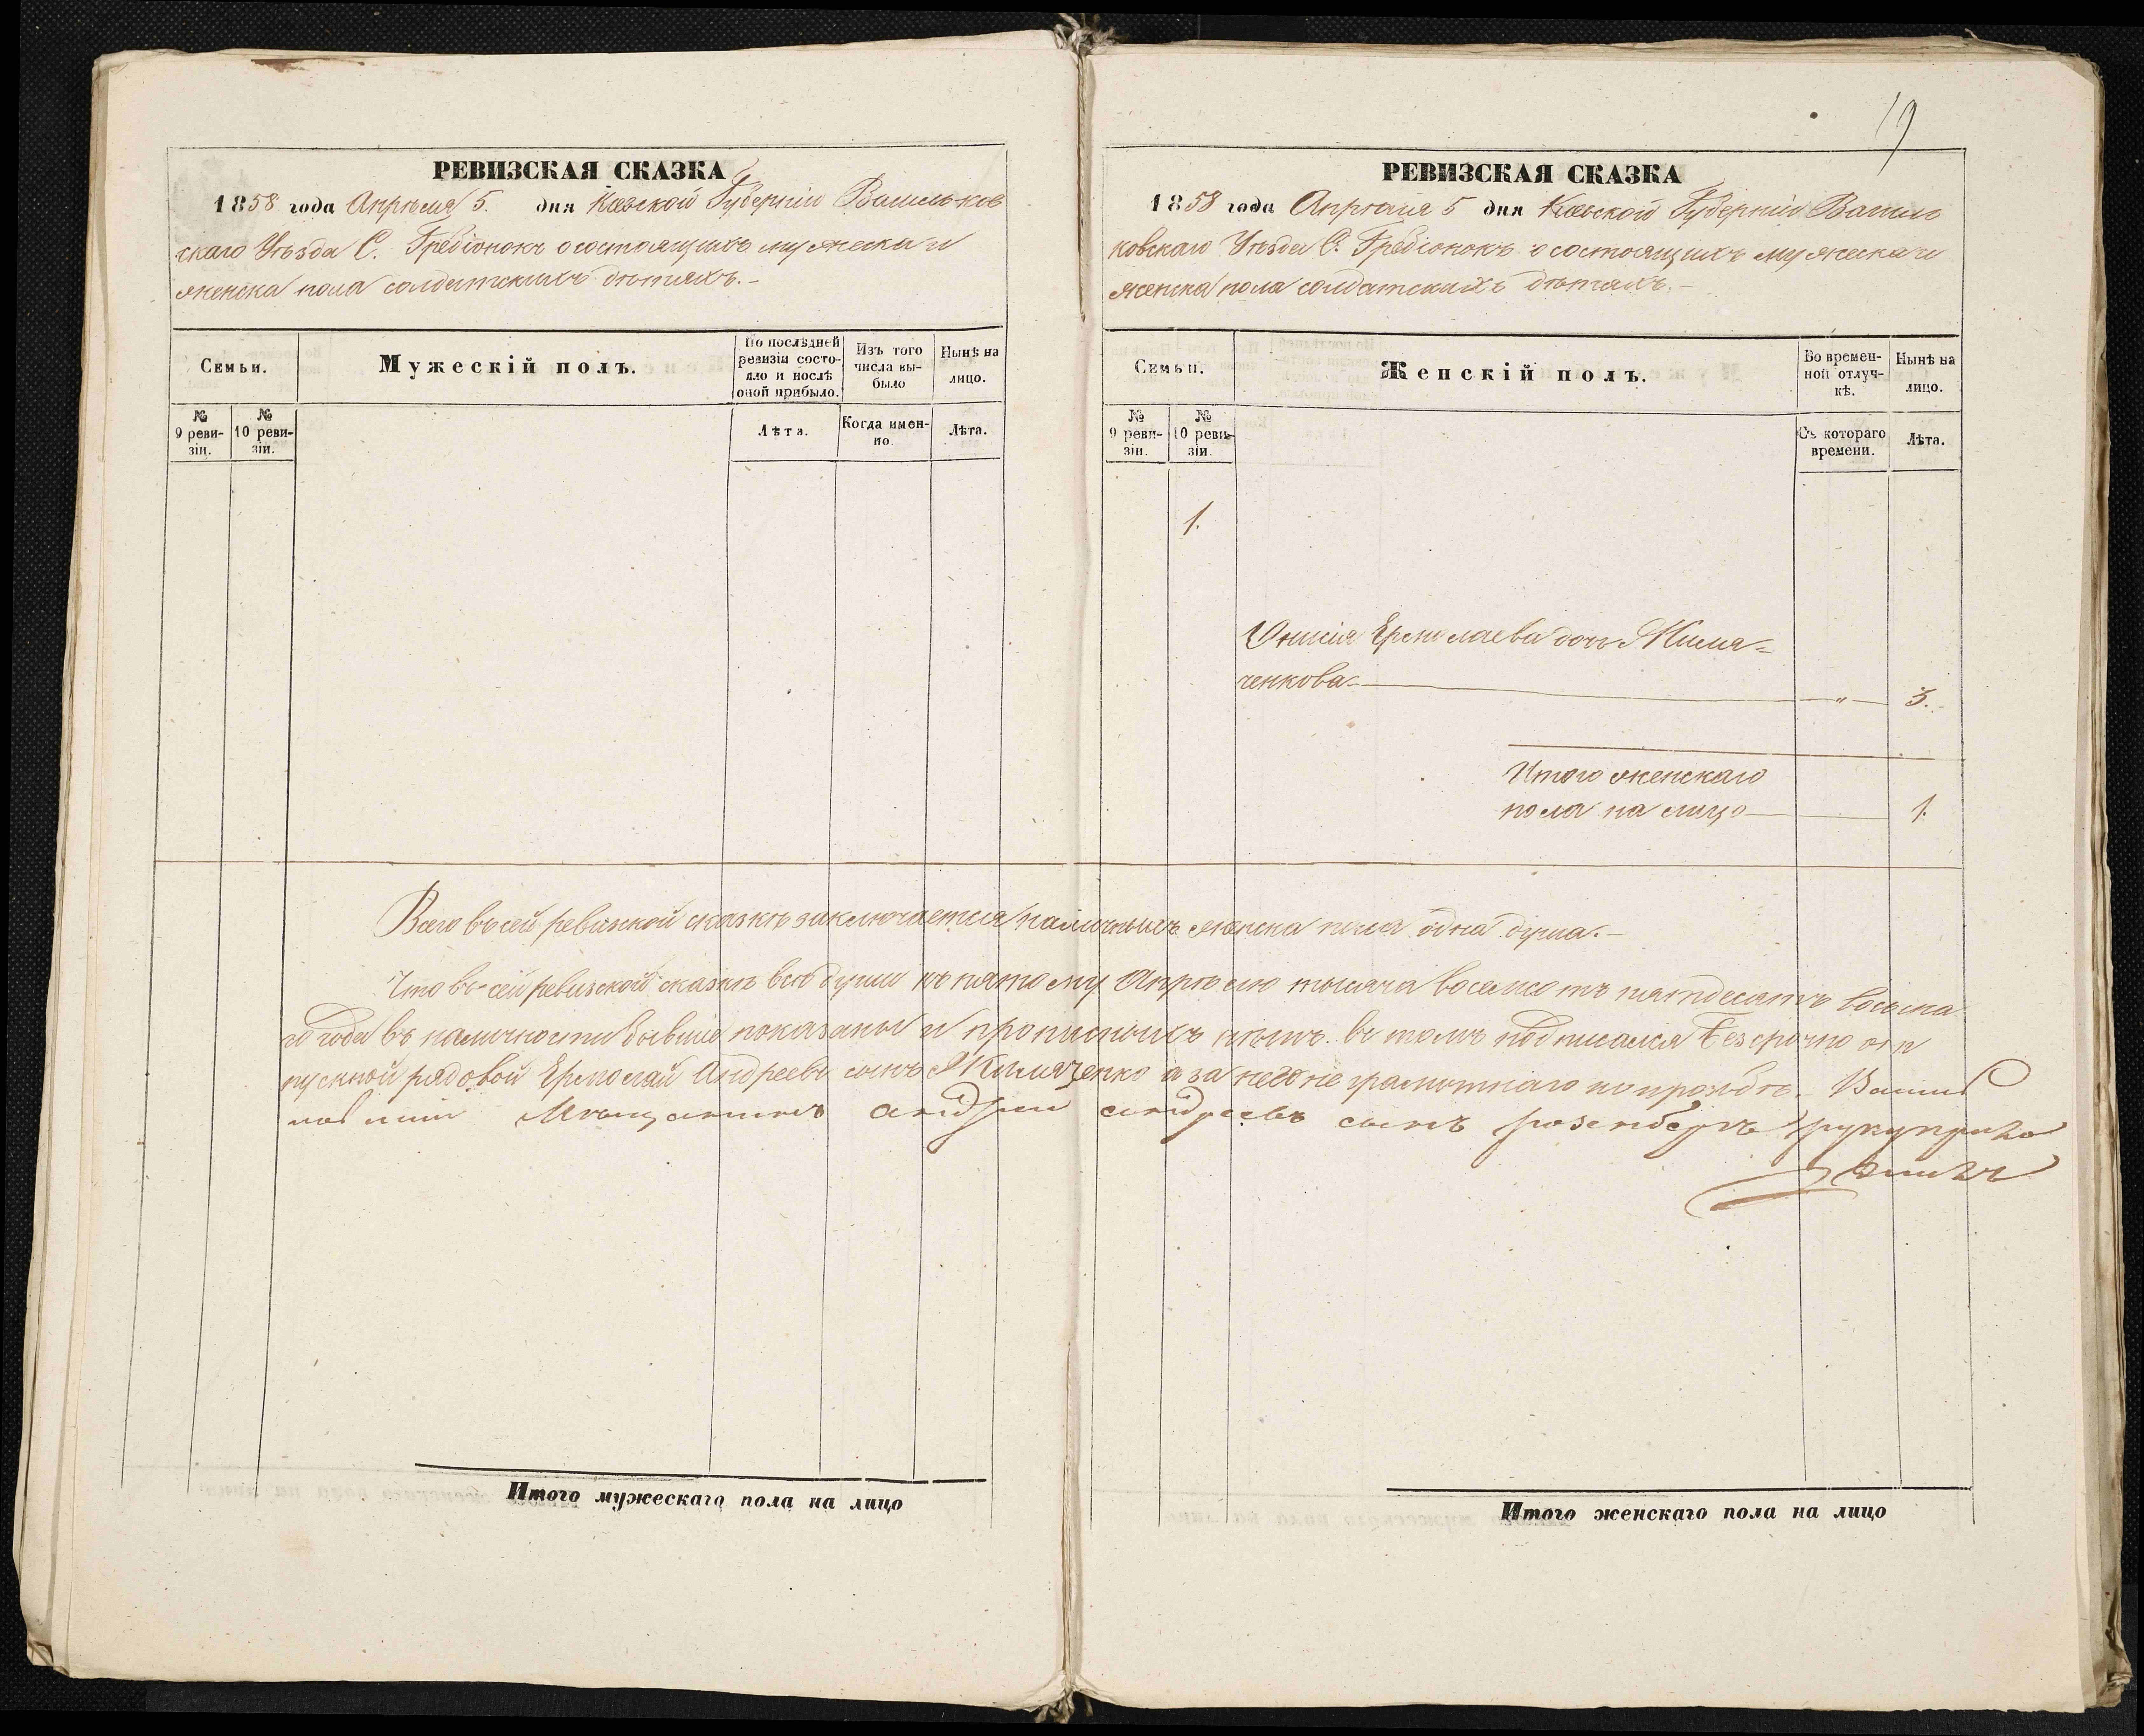 РЕВИЗСКАЯ СКАЗКА
1858 года Апрѣля 5. дня Кіевской Губерніи Васильков
скаго Уѣзда С. Гребіонокъ о состоящихъ мужеска и
женска пола солдатскихъ дѣтяхъ.-
Семьи.
Мужескій полъ.
По послѣдней ревизіи состояло и послѣ оной прибыло.
Изъ того числа выбыло
Нынѣ на лицо.
№ 9 ревизіи.
№ 10 ревизіи.
Лѣта.
Когда именно.
Лѣта.
Итого мужескаго пола на лицо
19
РЕВИЗСКАЯ СКАЗКА
1858 года Апрѣля 5 дня Кіевской Губерніи Васил
ковскаго Уѣзда С. Гребіонокъ о состоящихъ мужеска и
женска пола солдатскихъ дѣтяхъ.-
Семьи.
Женскій полъ.
Во временной отлучкѣ.
Нынѣ на лицо.
№ 9 ревизіи.
№ 10 ревизіи.
Съ котораго времени.
Лѣта.
1.
Ермолаева дочь
ченкова 〃 3.
Итого женскаго
пола на лицо 1.
Всего въ сей ревизской сказкѣ заключается наличныхъ женска пола одна душа.-
Что въ сей ревизской сказкѣ всѣ души къ пятому Апрѣлю тысяча восемсотъ пятдесятъ восьма
го года въ наличности бывшіе показаны и прописныхъ нѣтъ. въ томъ подписался безсрочно отп
ускной рядовой Ермолай Андреевъ сынъ а за него не грамотнаго по прозбѣ. Васил
ковский Мѣщанинъ андрей андреевъ сынъ розенбергъ руку прило
жилъ
Итого женскаго пола на лицо